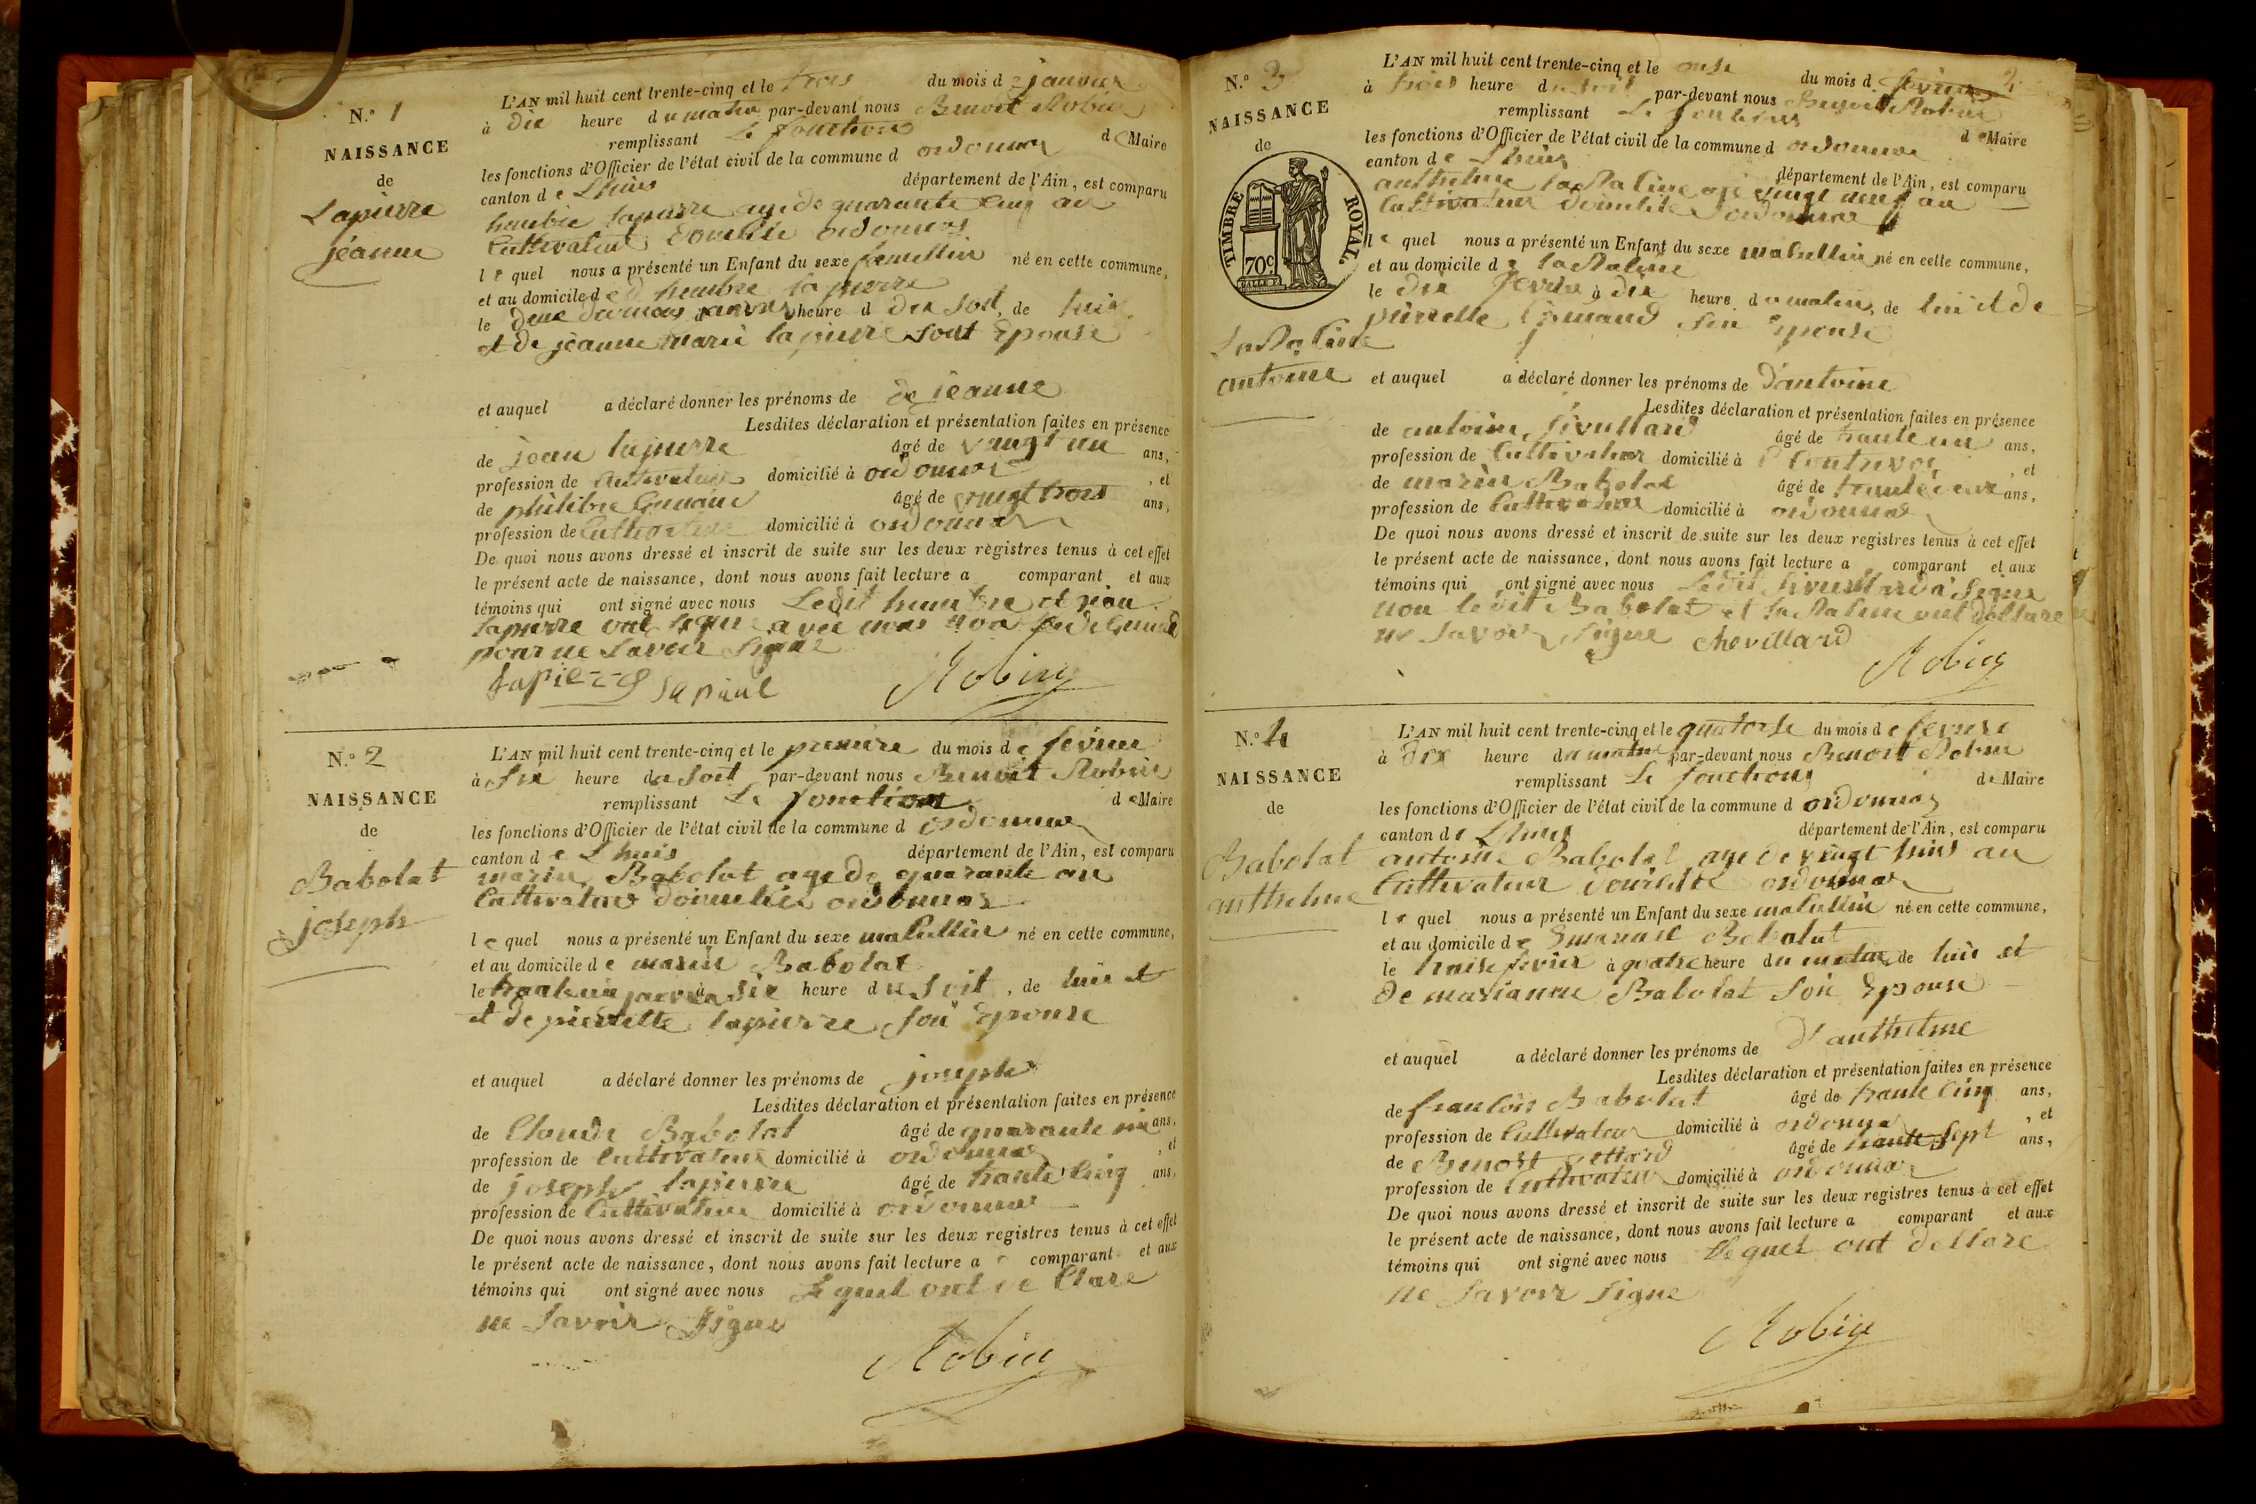 N.º 1
NAISSANCE
de
Lapierre
jeanne
L'AN mil huit cent trente-cinq et le trois du mois de janvier
à dix heure du matin par-devant nous Benoit Robin
remplissant Le fonctions de Maire
les fonctions d'Officier de l'état civil de la commune d ordonnas
canton de Lhuis département de l'Ain, est comparu
humbre lapierre age de quarante cinq an
Cultivateur domicilie ordonnas
lequel nous a présenté un Enfant du sexe femellin né en cette commune,
et au domicile de d humbre lapierre
le deux du mois janvier heure d du soit, de luis
et de jeanne marie lapierre sont Epouse
et auquel a déclaré donner les prénoms de de jeanne
Lesdites déclaration et présentation faites en présence
de jean lapierre âgé de vingt un ans,
profession de Cultivateur domicilié à ordonnas, et
de philibre âgé de vingt trois ans,
profession de Cultivateur domicilié à ordonnas
De quoi nous avons dressé et inscrit de suite sur les deux registres tenus à cet effet
le présent acte de naissance, dont nous avons fait lecture a comparant et aux
témoins qui ont signé avec nous Ledit humbre et jean
lapierre ont signe avec nous non
pour ne savoir signe
Robin
N.º 2
NAISSANCE
de
Babolat
joseph
L'AN mil huit cent trente-cinq et le premire du mois de fevrier
à six heure du soit par-devant nous Benoit Robin
remplissant Le fonction de Maire
les fonctions d'Officier de l'état civil de la commune d ordonnas
canton de Lhuis département de l'Ain, est comparu
marin Babolat age de quarante an
Cultivateur domicilié ordonnas
lequel nous a présenté un Enfant du sexe mascullin né en cette commune,
et au domicile de marin Babolat
le trante un janvier à six heure du soit, de luis et
et de pierrette lapierre son Epouse
et auquel a déclaré donner les prénoms de joseph
Lesdites déclaration et présentation faites en présence
de Claude Babolat âgé de quarante ans,
profession de Cultivateur domicilié à ordonnas, et
de joseph lapierre âgé de trante cinq ans,
profession de Cultivateur domicilié à ordonnas
De quoi nous avons dressé et inscrit de suite sur les deux registres tenus à cet effet
le présent acte de naissance, dont nous avons fait lecture a comparant et aux
témoins qui ont signé avec nous Lequel ont de Clare
ne savoir signe
Robin
N.º 3
NAISSANCE
de
TIMBRE ROYAL.
70c.
antoine
L'AN mil huit cent trente-cinq et le onse du mois d fevrier
à trois heure du soit par-devant nous Benoit Robin
remplissant Le fonctions de Maire
les fonctions d'Officier de l'état civil de la commune d ordonnas
canton de Lhuis département de l'Ain, est comparu
anthelme age vingt neuf an
Cultivateur domicilie ordonnas
lequel nous a présenté un Enfant du sexe mascullin né en cette commune,
et au domicile de
le dix fevrier à dix heure du matin, de luis et de
pierrette son Epouse
et auquel a déclaré donner les prénoms de d'antoine
Lesdites déclaration et présentation faites en présence
de antoine âgé de trante un ans,
profession de Cultivateur domicilié à, et
de marin Babolat âgé de ans,
profession de Cultivateur domicilié à ordonnas
De quoi nous avons dressé et inscrit de suite sur les deux registres tenus à cet effet
le présent acte de naissance, dont nous avons fait lecture a comparant et aux
témoins qui ont signé avec nous Ledit a signe
non ledit Babolat et ont declare
ne savoir signe chevillard
Robin
N.º 4
NAISSANCE
de
Babolat
anthelme
L'AN mil huit cent trente-cinq et le quatorse du mois de fevrier
à dix heure du matin par-devant nous Benoit Robin
remplissant Le fonctions de Maire
les fonctions d'Officier de l'état civil de la commune d ordonnas
canton de Lhuis département de l'Ain, est comparu
antoine Babolat age de vingt huis an
Cultivateur domicilie ordonnas
lequel nous a présenté un Enfant du sexe mascullin né en cette commune,
et au domicile de Babolat
le traise fevrier à quatre heure du matin, de luis et
de marianne Babolat son Epouse
et auquel a déclaré donner les prénoms de d'anthelme
Lesdites déclaration et présentation faites en présence
de francois Babolat âgé de trante cinq ans,
profession de Cultivateur domicilié à ordonnas, et
de Benoit âgé de trante sept ans,
profession de Cultivateur domicilié à ordonnas
De quoi nous avons dressé et inscrit de suite sur les deux registres tenus à cet effet
le présent acte de naissance, dont nous avons fait lecture a comparant et aux
témoins qui ont signé avec nous Lequel ont declare
ne savoir signe
Robin